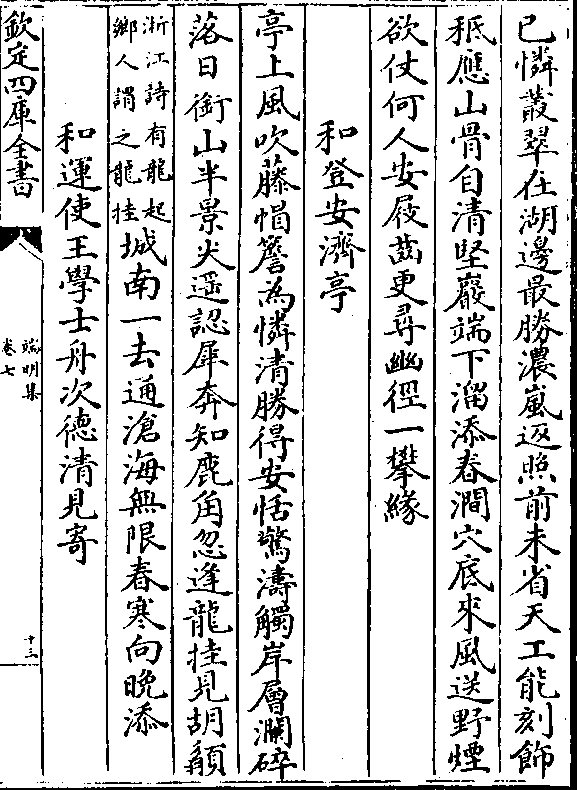 已憐叢翠在湖邊最勝濃嵐返照前未省天工能刻飾
秪應山骨自清堅巖端下溜添春澗穴底來風送野煙
欲仗何人安屐齒更尋幽徑一攀緣
和登安濟亭
亭上風吹藤帽簷為憐清勝得安恬驚濤觸岸層瀾碎
落日銜山半景尖遥認犀奔知鹿角忽逢龍挂見胡髯
浙江詩有龍起
鄉人謂之龍挂
城南一去通滄海無限春寒向晚添
和運使王學士舟次德清見寄
欽定四庫全書
端明集
卷七
十三